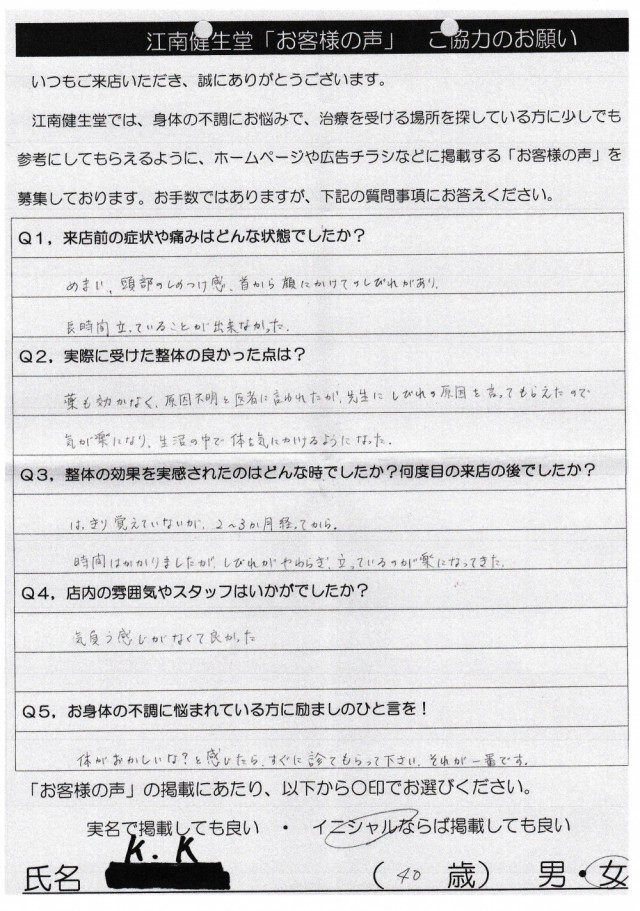 江南健生堂「お客様の声」　ご協力のお願い
いつもご来店いただき、誠にありがとうございます。
江南健生堂では、身体の不調にお悩みで、治療を受ける場所を探している方に少しでも
参考にしてもらえるように、ホームページや広告チラシなどに掲載する「お客様の声」を
募集しております。お手数ではありますが、下記の質問事項にお答えください。
Q1，来店前の症状や痛みはどんな状態でしたか？
めまい、頭部のしめつけ感、首から顔にかけてのしびれがあり、
長時間立っていることが出来なかった．
Q2，実際に受けた整体の良かった点は？
薬も効かなく、原因不明と医者に言われたが、先生にしびれの原因を言ってもらえたので
気が楽になり、生活の中で体を気にかけるようになった．
Q3，整体の効果を実感されたのはどんな時でしたか？何度目の来店の後でしたか？
はっきり覚えていないが、2～3か月経ってから．
時間はかかりましたが、しびれがやわらぎ、立っているのが楽になってきた．
Q4，店内の雰囲気やスタッフはいかがでしたか？
気負う感じがなくて良かった
Q5，お身体の不調に悩まれている方に励ましのひと言を！
体がおかしいな？と感じたら、すぐに診てもらって下さい．それが一番です．
「お客様の声」の掲載にあたり、以下から〇印でお選びください。
実名で掲載しても良い　・　イニシャルならば掲載しても良い
K．K
氏名　（40　歳）　男・女